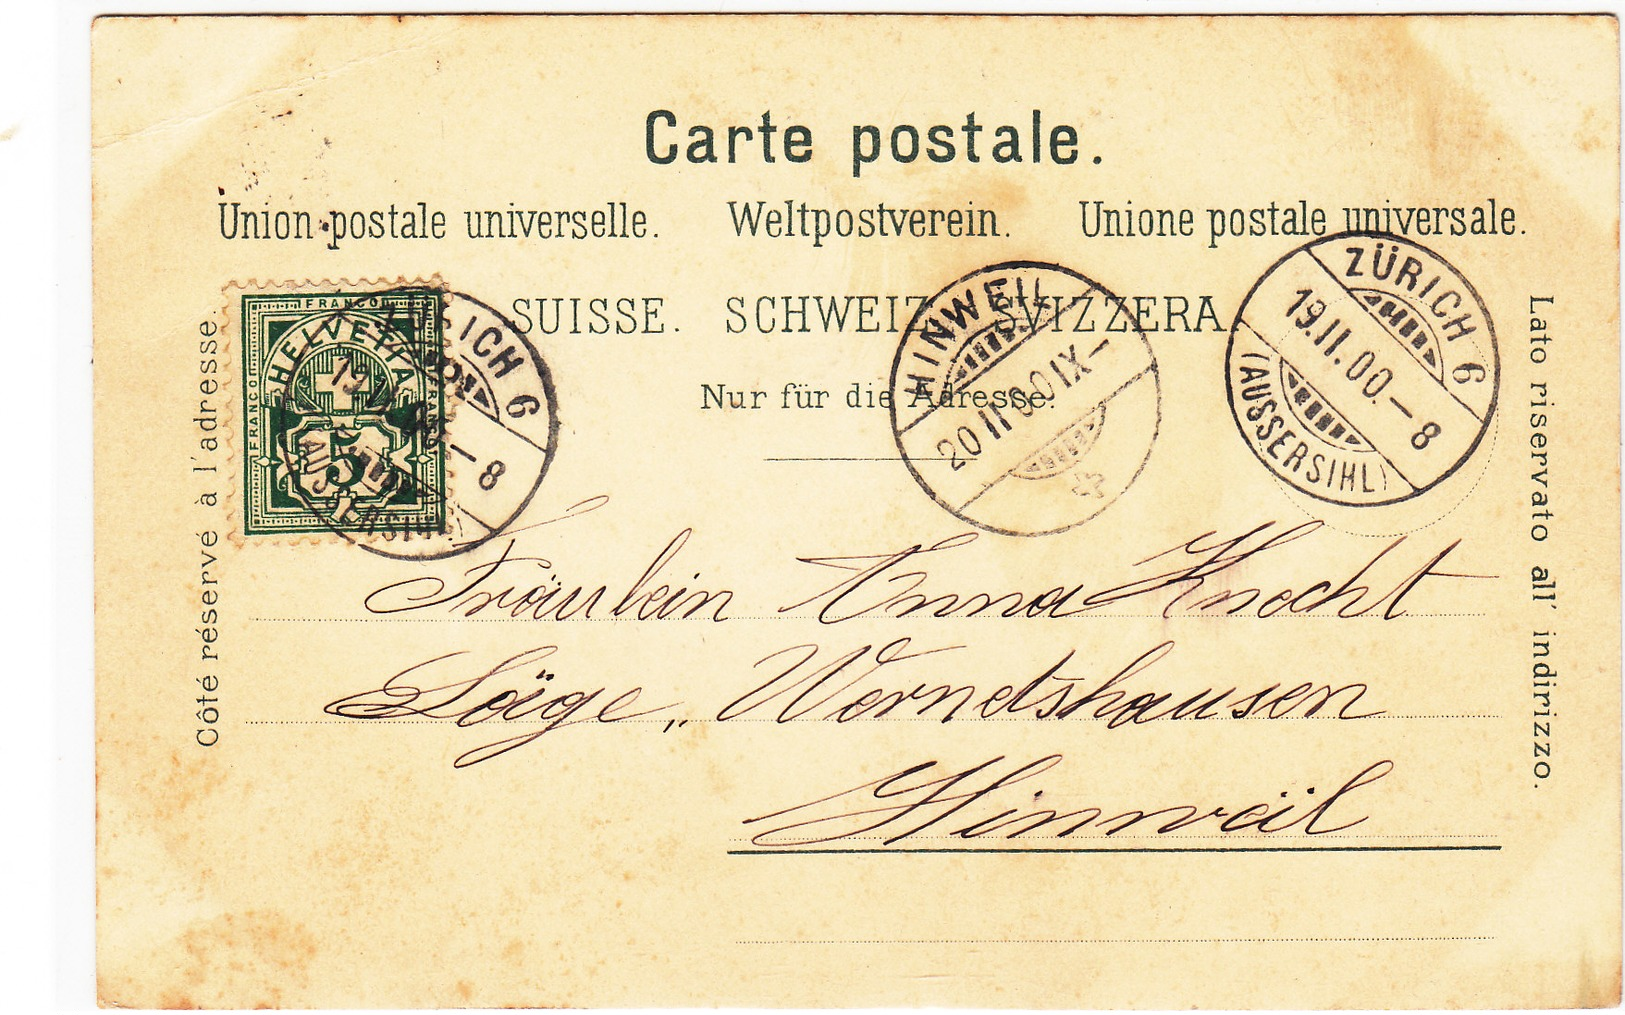 Carte postale.
Union postale universelle. Weltpostverein. Unione postale universale.
SUISSE. SCHWEIZ. SVIZZERA.
Nur für die Adresse.
Côté réservé à l'adresse.
Lato riservato all' indirizzo.
FRANCO
FRANCO
FRANCO
HELVETIA
5
ZÜRICH 6
19.II.00.–8
(AUSSERSIHL)
HINWEIL
20 II 00 IX–
ZÜRICH 6
19.II.00.–8
(AUSSERSIHL)
Fräulein Anna Knecht
Wernetshausen
Hinweil